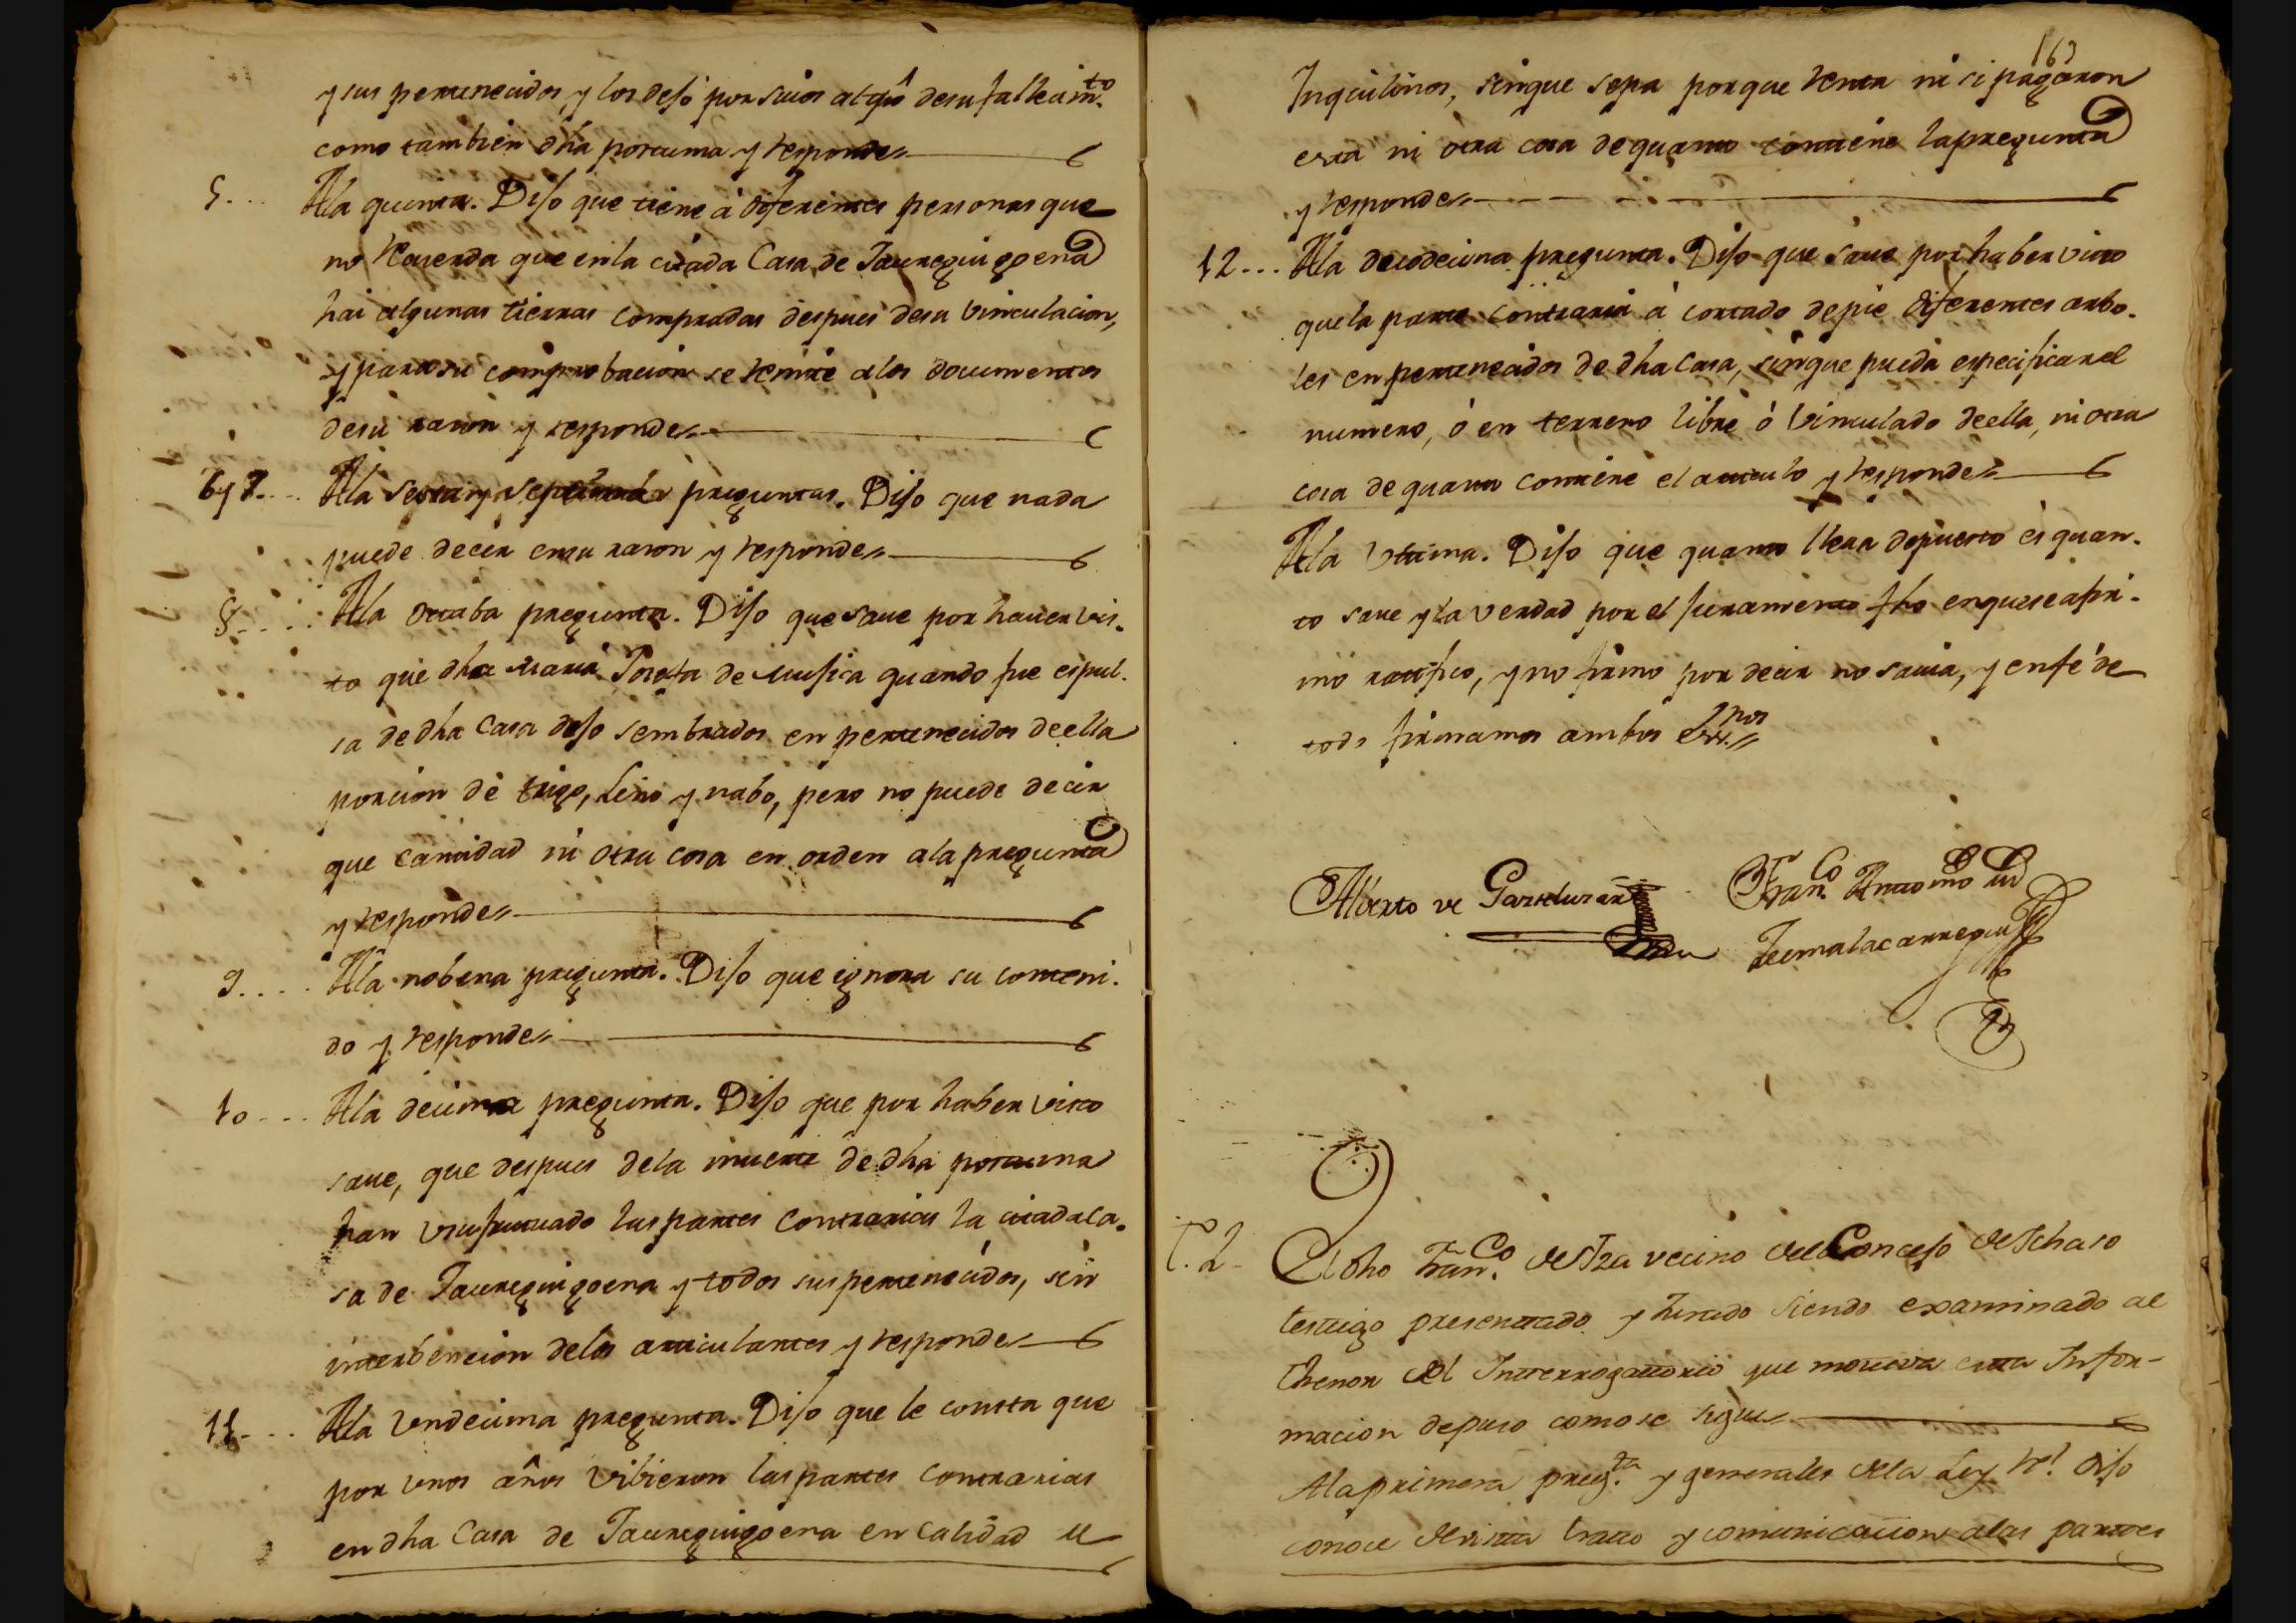 y sus pertenecidos y los dejo por suios al tpô de su fallecimto.
como tambien dha Portuma y responde
5... Ala quinta. Dijo que tiene à diferentes personas que
no recuerda que en la citada Casa de Jaureguigoena
hai algunas tierras compradas despues de su vinculacion,
y para su comprobacion se remite alos documentos
de su razon y responde
6 y 7... Ala sexta y septima preguntas. Dijo que nada
puede decir en su razon y responde
8.... Ala octaba pregunta. Dijo que save por haver vis-
to que dha Maria Josefa de Mujica quando fue espul-
sa de dha Casa dejo sembrados en pertenecidos de ella
porcion de trigo, lino y nabo, pero no puede decir
que cantidad ni otra cosa en orden ala pregunta
y responde
9.... Ala nobena pregunta. Dijo que ignora su conteni-
do y responde
10... Ala decima pregunta. Dijo que por haber visto
save, que despues dela muerte de dha Portuma
han usufrutuado las partes contrarias la citada ca-
sa de Jaureguigoena y todos sus pertenecidos, sin
interbencion delos articulantes y responde
11... Ala undecima pregunta. Dijo que le consta que
por unos años vibieron las partes contrarias
en dha Casa de Jaureguigoena en calidad de
163
Inquilinos, sin que sepa porque renta ni si pagaron
esta ni otra cosa de quanto contiene la pregunta
y responde
12... Ala duodecima pregunta. Dijo que save por haber visto
que la parte contraria à cortado de pie diferentes arbo-
les en pertenecidos de dha Casa, sin que pueda especificar el
numero, ò en terreno libre ò vinculado de ella, ni otra
cosa de quanto contiene el articulo y responde
Ala ultima. Dijo que quanto lleva depuesto es quan-
to save y la verdad por el juramento fho en que se afir-
mò ratifico, y no firmo por decir no savia, y en fé de
todo firmamos ambos Essnos
Alberto de Franco Antonio de
Zumalacarregui
T. 2 El dho Franco de Iza vecino del Concejo de Ichaso
testigo presentado y jurado siendo examinado al
thenor del Interrogatorio que motiva esta Infor-
macion depuso como se sigue
Ala primera pregta y generales dela Ley Rl. Dijo
conoce de vista trato y comunicacion alas partes